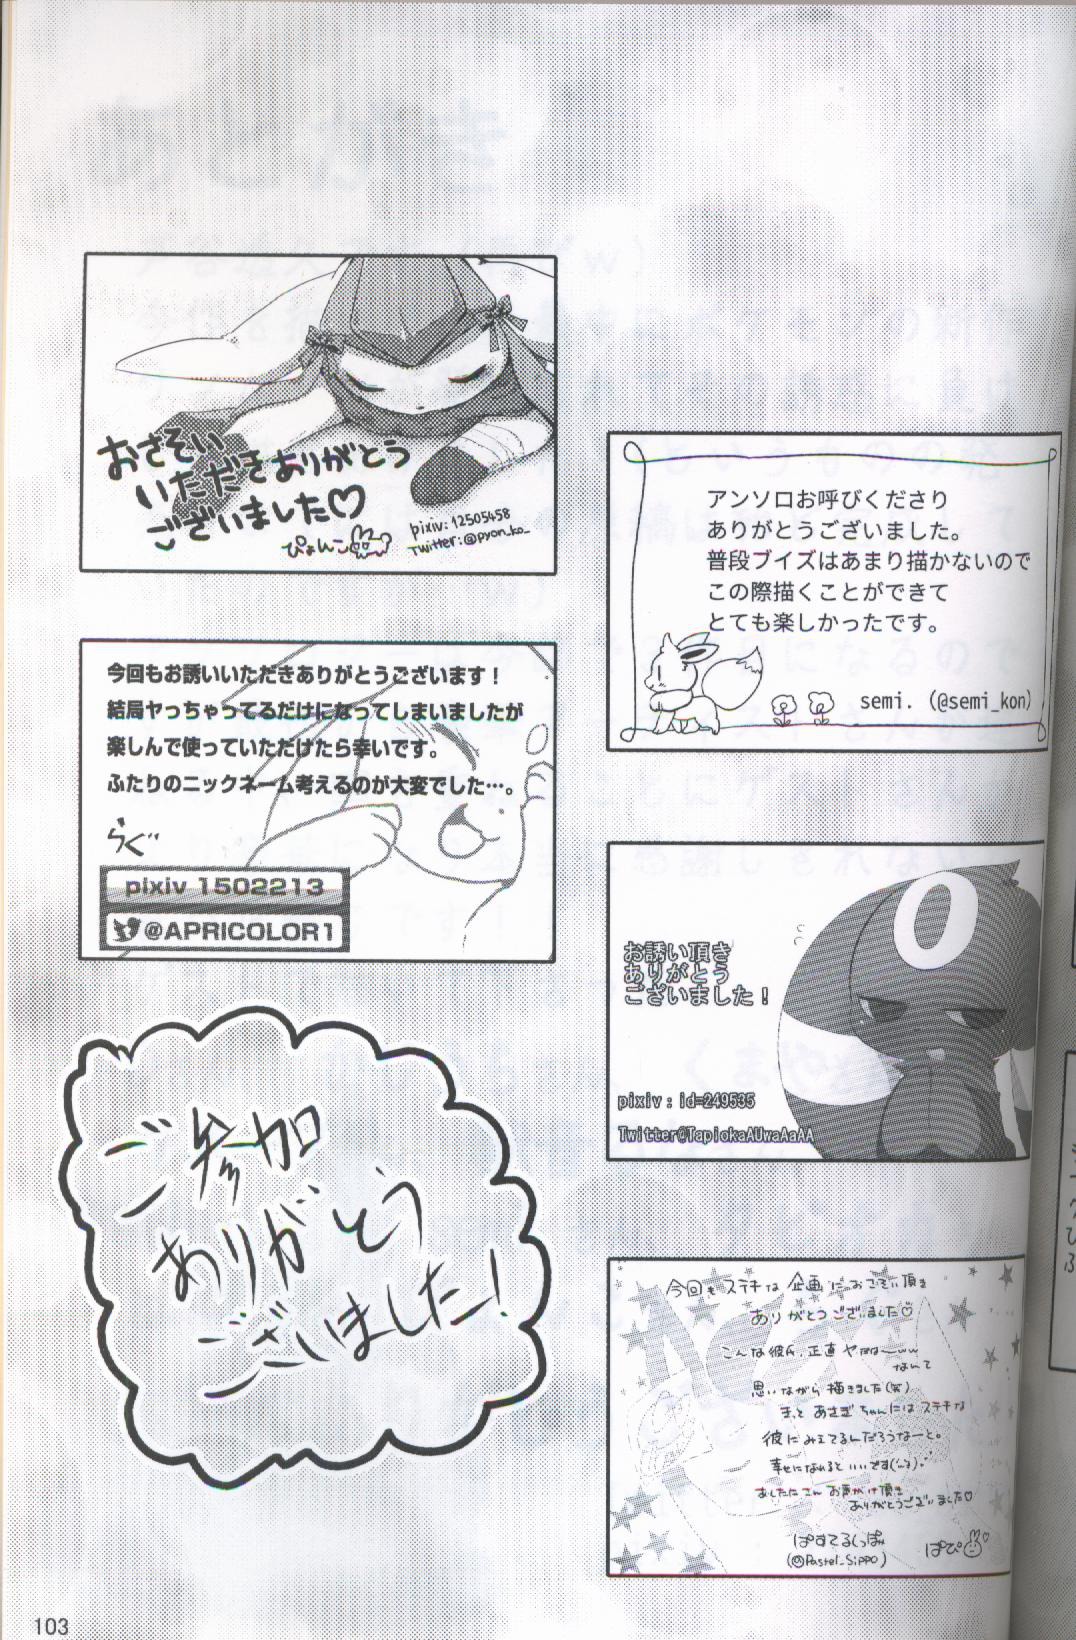 おさそい
いただきありがとう
ございました♡
ぴょんこ
pixiv:12505458
Twitter:@pyon_ko_
アンソロお呼びくださり
ありがとうございました。
普段ブイズはあまり描かないので
この際描くことができて
とても楽しかったです。
semi. (@semi_kon)
今回もお誘いいただきありがとうございます!
結局ヤっちゃってるだけになってしまいましたが
楽しんで使っていただけたら幸いです。
ふたりのニックネーム考えるのが大変でした…。
らぐ
pixiv 1502213
@APRICOLOR1
お誘い頂き
ありがとう
ございました!
pixiv:id=249535
Twitter@TapiokaAUwaAaAA
ご参加
ありがとう
ございました!
今回もステキな企画におさそい頂き
ありがとうございました♡
こんな彼氏、正直ヤだな〜ww
なんて
思いながら描きました(笑)
きっとあさぎちゃんにはステキな
彼にみえてるんだろうなーと。
幸せになれるといいです
さんお声がけ頂き
ありがとうございました♡
ぱすてるしっぽ
(@Pastel_Sippo)
ぱぴ
103